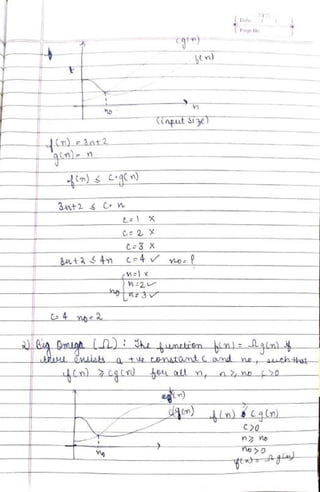 Date
Page No.
cg(n)
f(n)
t
n
n₀
(input size)
f(n) = 3n+2
g(n) = n
f(n) ≤ c·g(n)
3n+2 ≤ c·n
c=1 ×
c=2 ×
c=3 ×
3n+2 ≤ 4n c=4 ✓ n₀=?
n=1 ×
n₀ n=2 ✓
n=3 ✓
c=4 n₀=2
2) Big Omega (Ω) : The function f(n) = Ω g(n) if
there exists a +ve constant c and n₀, such that
f(n) ≥ cg(n) for all n, n ≥ n₀ c>0
f(n)
cg(n) f(n) ≥ c g(n)
c>0
n ≥ n₀
n₀ n₀>0
f(n) = Ω g(n)